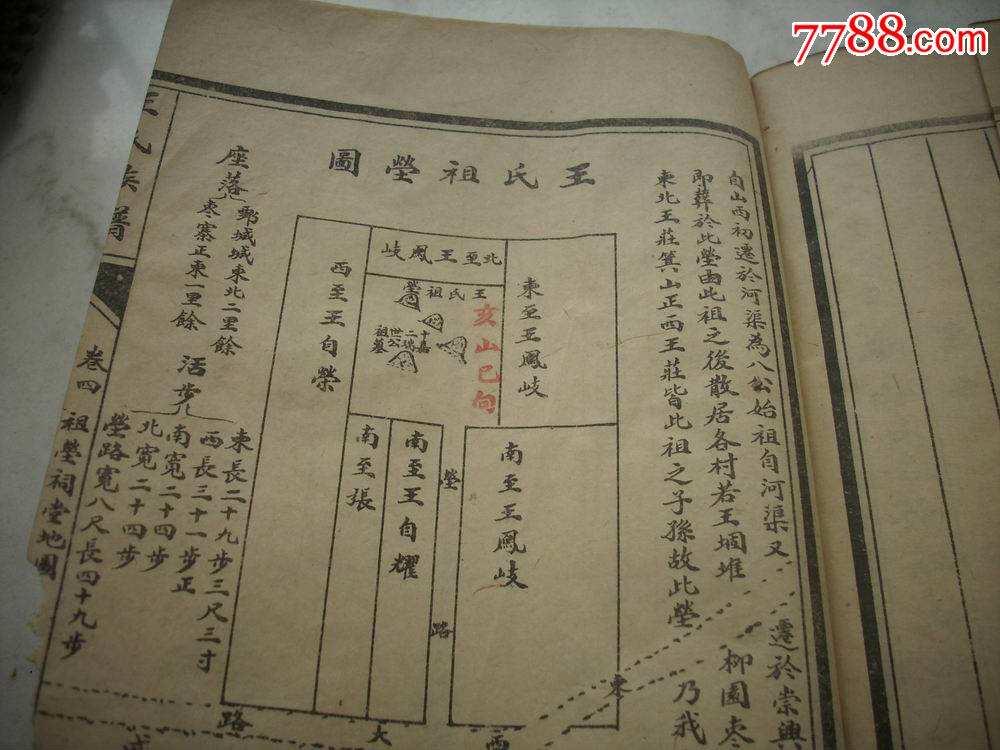 7788.com
王氏祖塋圖
自山西初遷於河渠為八公始祖自河渠又遷於崇興
即葬於此塋由此祖之後散居各村若王堌堆柳園枣
東北王莊箕山正西王莊皆此祖之子孫故此塋乃我
東至王鳳岐
北至王鳳岐
王氏祖塋
亥山巳向
西至王自榮
南至王鳳岐
塋路
南至王自耀
南至張
東
西
大
路
座落
鄄城城東北二里餘
枣寨正東一里餘
活步
東長二十九步三尺三寸
西長三十一步正
南寬二十四步
北寬二十四步
塋路寬八尺長四十九步
王氏族譜
卷四
祖塋祠堂地圖